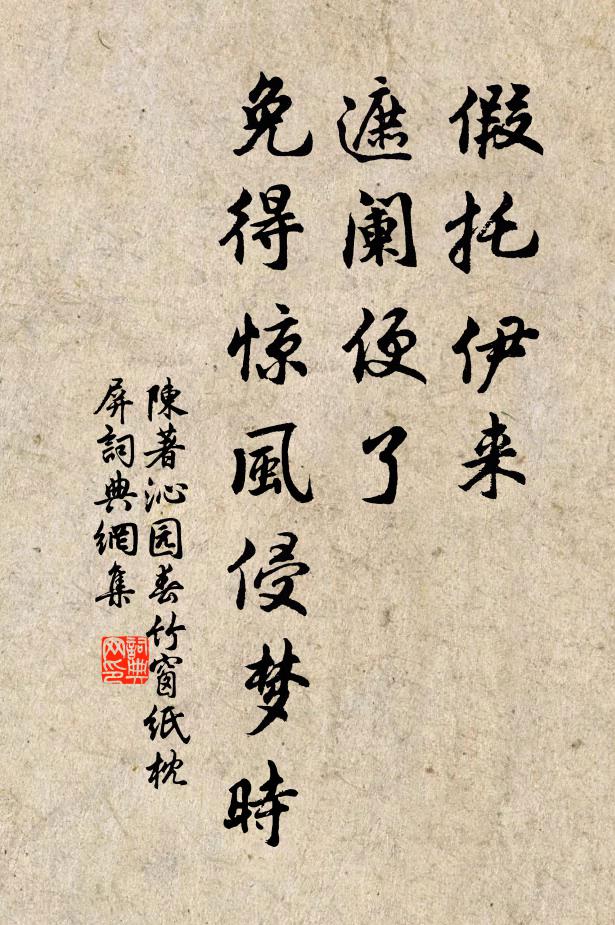 假托伊来
遮阑便了
免得惊風侵梦時
陳著沁园春竹窗紙枕
屏詞典網集
詞典
网印